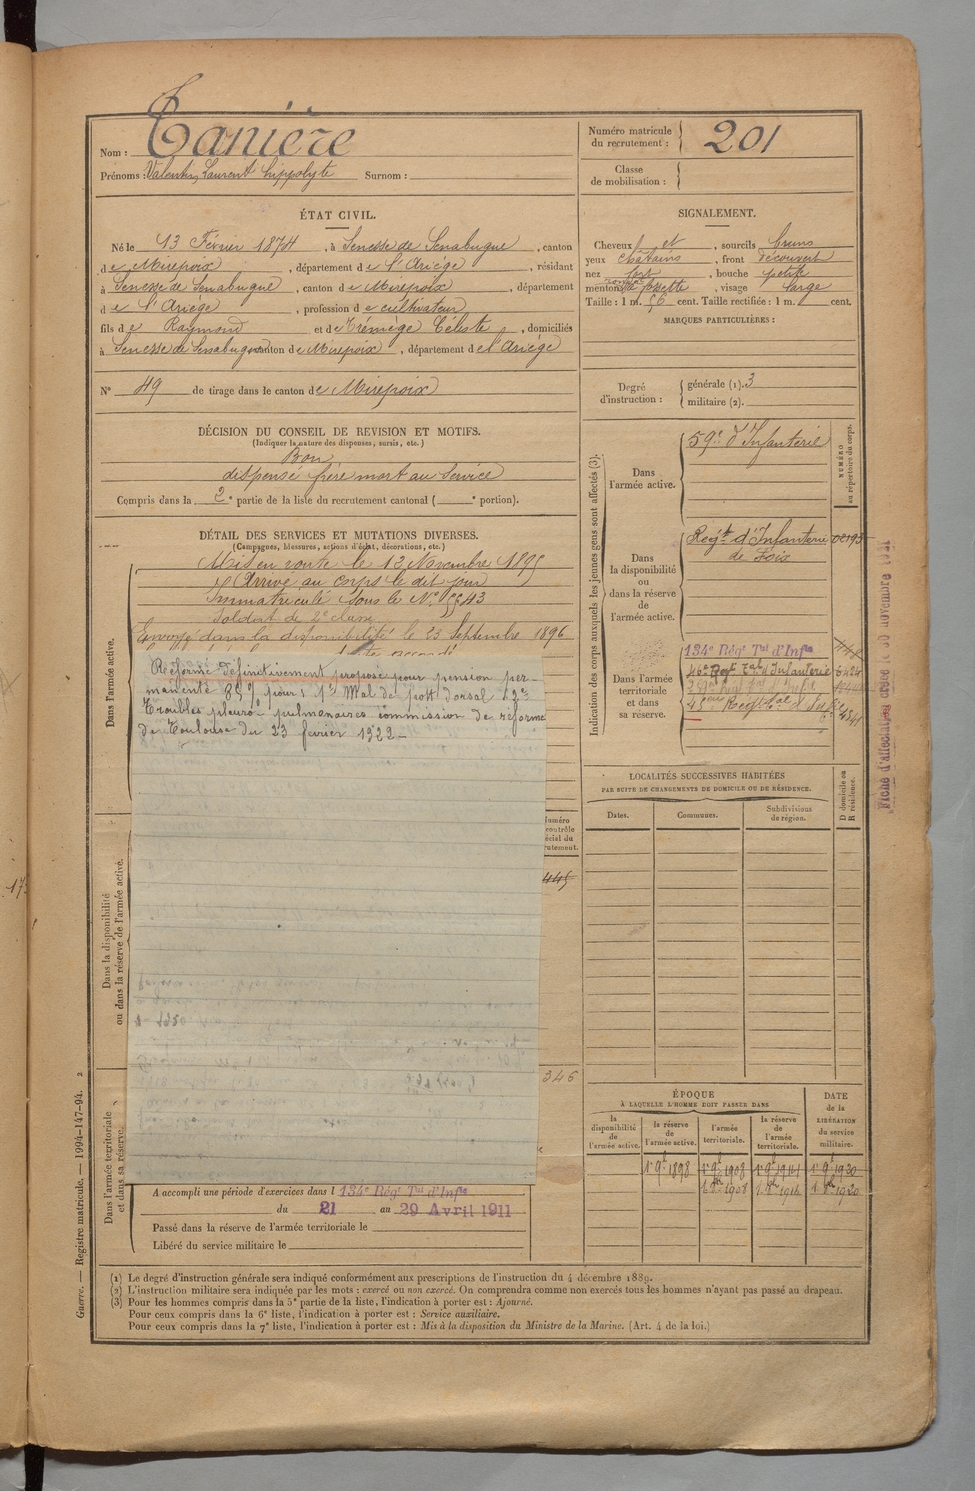 Nom : Tanière
Prénoms : Valentin, Laurent Hippolyte Surnom :
Numéro matricule du recrutement : 201
Classe de mobilisation :
ÉTAT CIVIL.
Né le 13 Février 1874, à Senesse de Senabugue, canton
de Mirepoix, département de l'Ariège, résidant
à Senesse de Senabugue, canton de Mirepoix, département
de l'Ariège, profession de cultivateur
fils de Raymond et de Trémège Céleste, domiciliés
à Senesse de Senabugue canton de Mirepoix, département de l'Ariège
N° 49 de tirage dans le canton de Mirepoix
SIGNALEMENT.
Cheveux et, sourcils bruns
yeux chatains, front découvert
nez fort, bouche petite
menton rond à fossette, visage large
Taille : 1 m. 56 cent. Taille rectifiée : 1 m. cent.
MARQUES PARTICULIÈRES :
Degré d'instruction : générale (1). 3
militaire (2).
DÉCISION DU CONSEIL DE REVISION ET MOTIFS.
(Indiquer la nature des dispenses, sursis, etc.)
Bon
dispensé frère mort au service
Compris dans la 2e partie de la liste du recrutement cantonal ( e portion).
DÉTAIL DES SERVICES ET MUTATIONS DIVERSES.
(Campagnes, blessures, actions d'éclat, décorations, etc.)
Dans l'armée active.
Mis en route le 13 Novembre 1895
Arrivé au corps le dit jour
Immatriculé sous le N° 5643
Soldat de 2e classe
Envoyé dans la disponibilité le 23 Septembre 1896
Réformé définitivement proposé pour pension per-
manente 85% pour : 1° Mal de pott dorsal 2°
Troubles pleuro pulmonaires commission de réforme
de Toulouse du 23 février 1922 –
Dans la disponibilité
ou dans la réserve de l'armée active.
Dans l'armée territoriale
et dans sa réserve.
445
346
A accompli une période d'exercices dans l 134e Régt Tal d'Infie
du 21 au 29 Avril 1911
Passé dans la réserve de l'armée territoriale le
Libéré du service militaire le
Indication des corps auxquels les jeunes gens sont affectés (3).
NUMÉRO au répertoire du corps.
Dans l'armée active.
59e d'Infanterie
Dans la disponibilité ou dans la réserve de l'armée active.
Régt d'Infanterie 02193
de Foix
Dans l'armée territoriale et dans sa réserve.
134e Régt Tal d'Infie
Fiche d'affectation
LOCALITÉS SUCCESSIVES HABITÉES
PAR SUITE DE CHANGEMENTS DE DOMICILE OU DE RÉSIDENCE.
D domicile ou R résidence.
Dates. Communes. Subdivisions de région.
ÉPOQUE
À LAQUELLE L'HOMME DOIT PASSER DANS
DATE de la LIBÉRATION du service militaire.
la disponibilité de l'armée active. la réserve de l'armée active. l'armée territoriale. la réserve de l'armée territoriale.
(1) Le degré d'instruction générale sera indiqué conformément aux prescriptions de l'instruction du 4 décembre 1889.
(2) L'instruction militaire sera indiquée par les mots : exercé ou non exercé. On comprendra comme non exercés tous les hommes n'ayant pas passé au drapeau.
(3) Pour les hommes compris dans la 5e partie de la liste, l'indication à porter est : Ajourné.
Pour ceux compris dans la 6e liste, l'indication à porter est : Service auxiliaire.
Pour ceux compris dans la 7e liste, l'indication à porter est : Mis à la disposition du Ministre de la Marine. (Art. 4 de la loi.)
Guerre. — Registre matricule. — 1994-147-94. 2